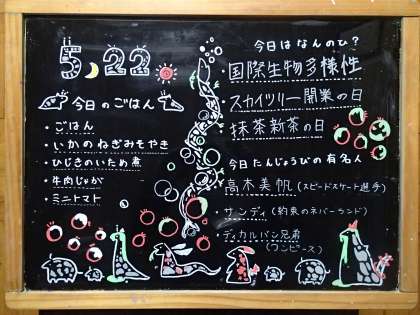 5.22
今日のごはん
・ごはん
・いかのねぎみそやき
・ひじきのいため煮
・牛肉じゃが
・ミニトマト
今日はなんのひ?
・国際生物多様性
・スカイツリー開業の日
・抹茶新茶の日
今日たんじょうびの有名人
・高木美帆(スピードスケート選手)
・サンディ(約束のネバーランド)
・ディカルバン兄弟
(ワンピース)